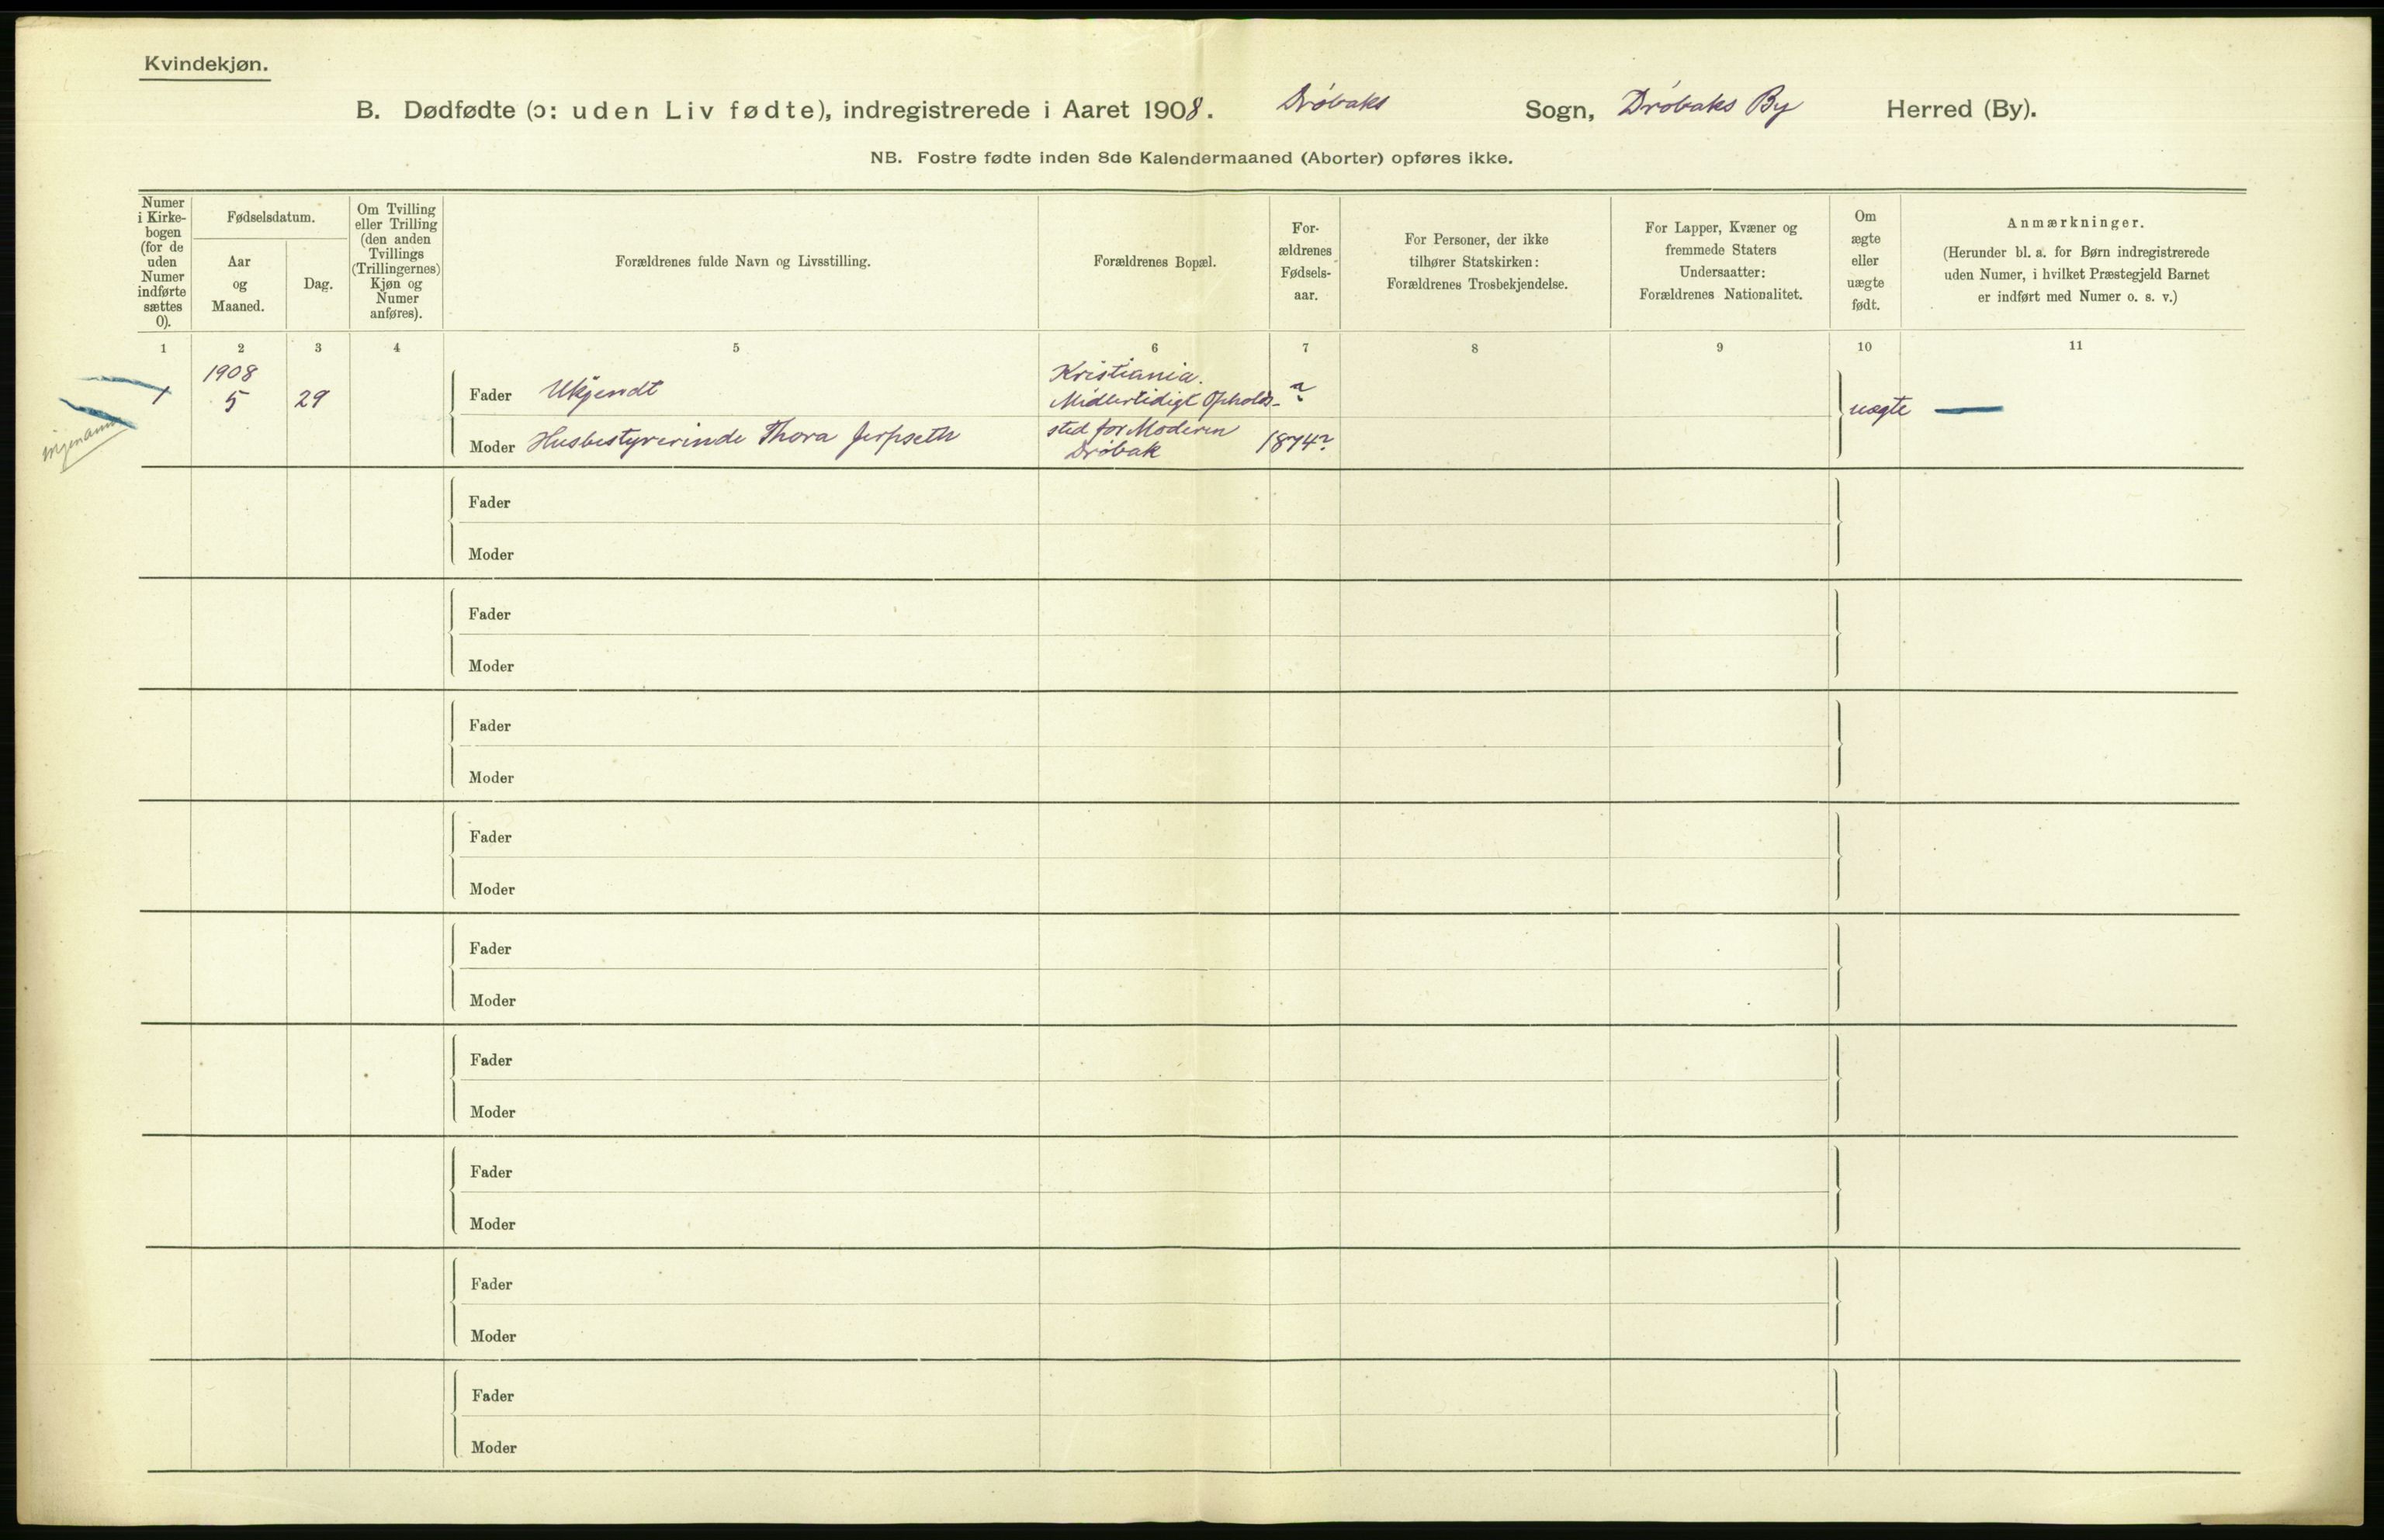 Kvindekjøn.
B. Dødfødte (ɔ: uden Liv fødte), indregistrerede i Aaret 1908. Drøbaks Sogn, Drøbaks By Herred (By).
NB. Fostre fødte inden 8de Kalendermaaned (Aborter) opføres ikke.
Numer
i Kirke-
bogen
(for de
uden
Numer
indførte
sættes
0).
Fødselsdatum.
Aar
og
Maaned.
Dag.
Om Tvilling
eller Trilling
(den anden
Tvillings
(Trillingernes)
Kjøn og
Numer
anføres).
Forældrenes fulde Navn og Livsstilling.
Forældrenes Bopæl.
For-
ældrenes
Fødsels-
aar.
For Personer, der ikke
tilhører Statskirken:
Forældrenes Trosbekjendelse.
For Lapper, Kvæner og
fremmede Staters
Undersaatter:
Forældrenes Nationalitet.
Om
ægte
eller
uægte
født.
Anmærkninger.
(Herunder bl. a. for Børn indregistrerede
uden Numer, i hvilket Præstegjeld Barnet
er indført med Numer o. s. v.)
1 2 3 4 5 6 7 8 9 10 11
1
1908
5
29
Fader Ukjendt
Moder Husbestyrerinde Thora Jerpseth
Kristiania.
Midlertidigt Opholds-
sted for Moderen
Drøbak
?
1874?
uægte
Fader
Moder
Fader
Moder
Fader
Moder
Fader
Moder
Fader
Moder
Fader
Moder
Fader
Moder
Fader
Moder
Fader
Moder